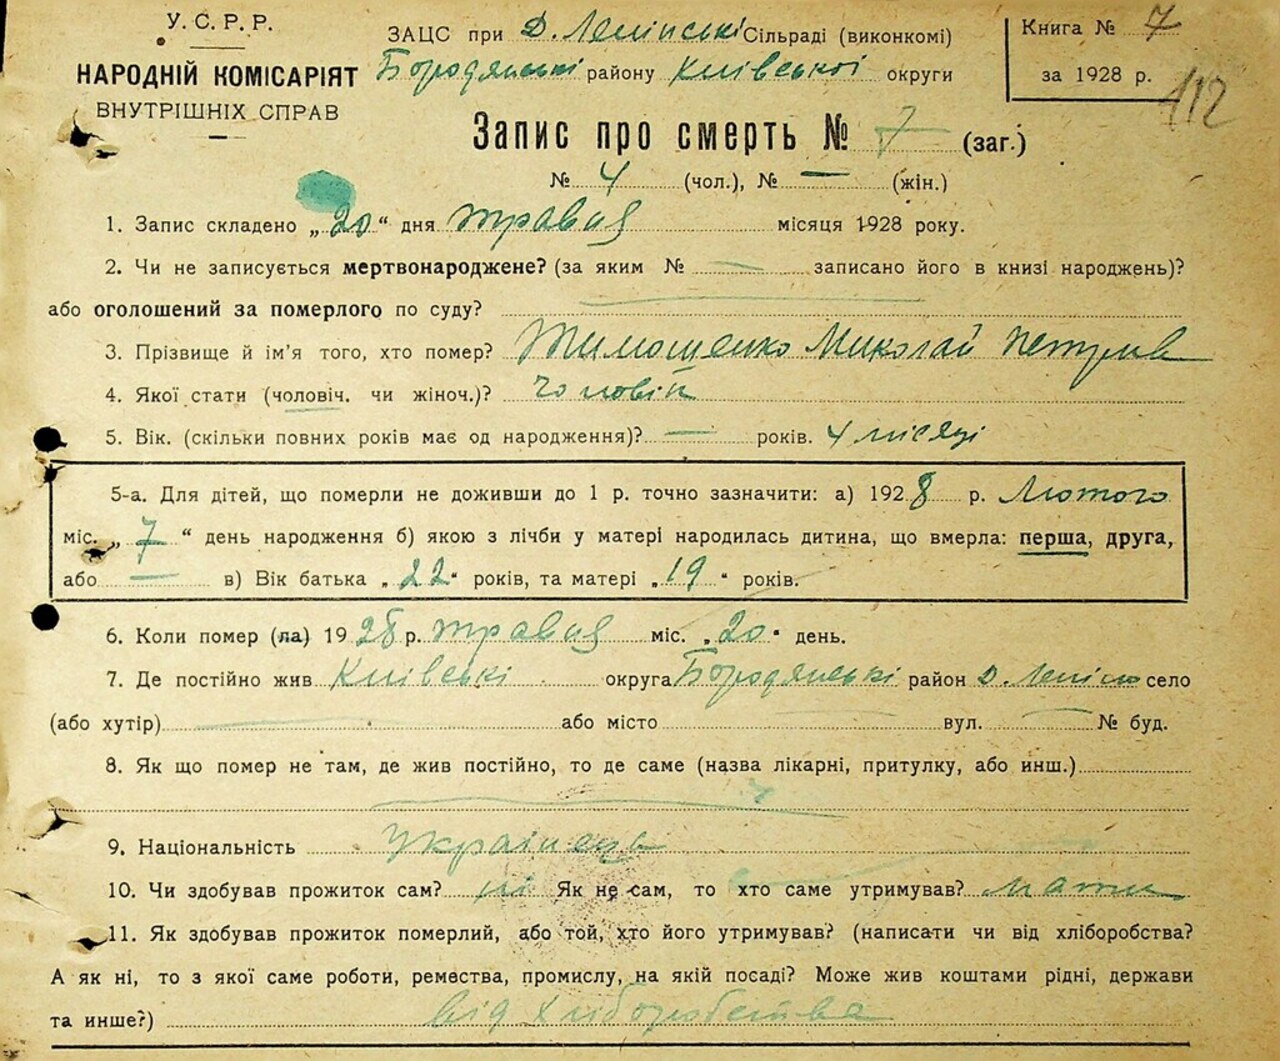 У. С. Р. Р.
НАРОДНІЙ КОМІСАРІЯТ
ВНУТРІШНІХ СПРАВ
ЗАЦС при Д. Ленінські Сільраді (виконкомі)
Бородянські району Київської округи
Книга № 7
за 1928 р.
112
Запис про смерть № 7 (заг.)
№ 4 (чол.), № — (жін.)
1. Запис складено „20“ дня травня місяця 1928 року.
2. Чи не записується мертвонароджене? (за яким № — записано його в книзі народжень)?
або оголошений за померлого по суду? —
3. Прізвище й ім'я того, хто помер? Тимошенко Миколай Петрив
4. Якої стати (чоловіч. чи жіноч.)? чоловій
5. Вік. (скільки повних років має од народження)? — років. 4 місяці
5-а. Для дітей, що померли не доживши до 1 р. точно зазначити: а) 1928 р. Лютого
міс. „7“ день народження б) якою з лічби у матері народилась дитина, що вмерла: перша, друга,
або — в) Вік батька „22“ років, та матері „19“ років.
6. Коли помер (ла) 1928 р. травня міс. „20“ день.
7. Де постійно жив Київські округа Бородянські район Д. село
(або хутір) — або місто — вул. — № буд.
8. Як що помер не там, де жив постійно, то де саме (назва лікарні, притулку, або инш.)
—
9. Національність Українець
10. Чи здобував прожиток сам? ні Як не сам, то хто саме утримував? мати
11. Як здобував прожиток померлий, або той, хто його утримував? (написати чи від хліборобства?
А як ні, то з якої саме роботи, ремества, промислу, на якій посаді? Може жив коштами рідні, держави
та инше?) від хліборобства